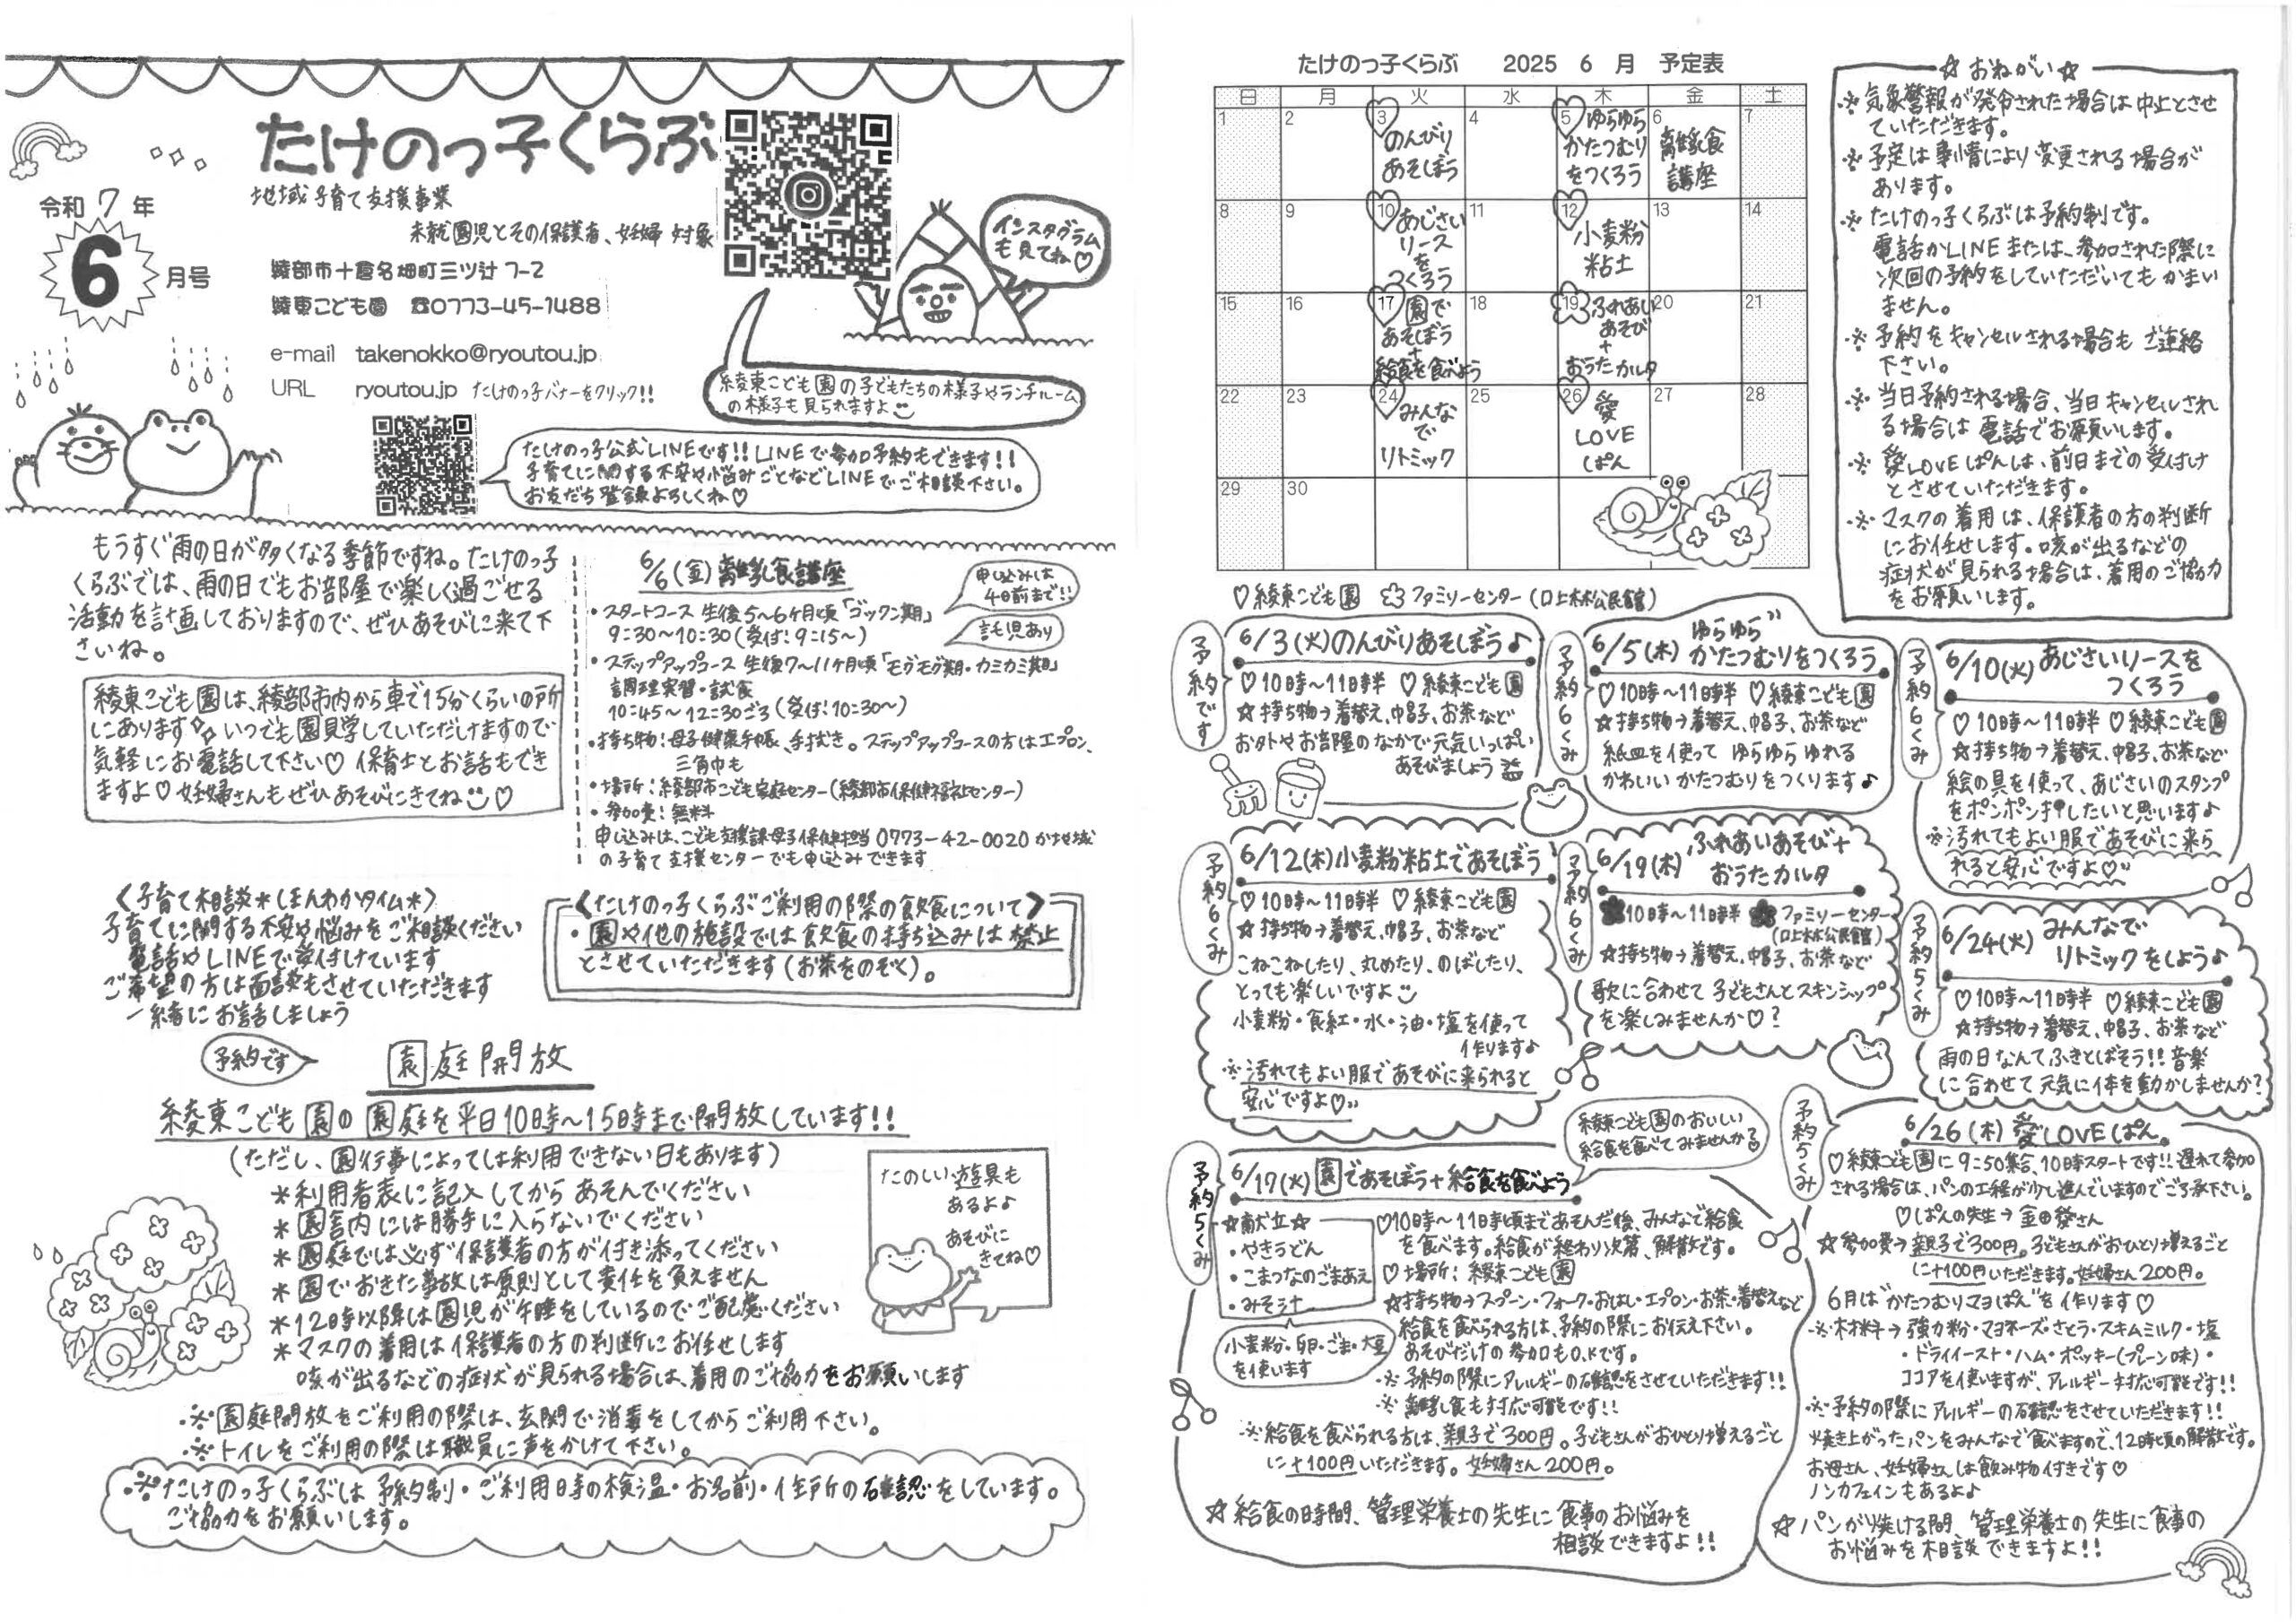 たけのっ子くらぶ
地域子育て支援事業
未就園児とその保護者、妊婦 対象
令和7年
6
月号
綾部市十倉名畑町三ツ辻7-2
綾東こども園 ☎0773-45-1488
e-mail takenokko@ryoutou.jp
URL ryoutou.jp たけのっ子バナーをクリック!!
インスタグラム
も見てね♡
綾東こども園の子どもたちの様子やランチルーム
の様子も見られますよ
たけのっ子公式LINEです!! LINEで参加予約もできます!!
子育てに関する不安や悩みごとなどLINEでご相談下さい。
お友だち登録よろしくね♡
もうすぐ雨の日が多くなる季節ですね。たけのっ子
くらぶでは、雨の日でもお部屋で楽しく過ごせる
活動を計画しておりますので、ぜひあそびに来て下
さいね。
綾東こども園は、綾部市内から車で15分くらいの所
にあります いつでも園見学していただけますので
気軽にお電話して下さい♡ 保育士とお話もでき
ますよ♡ 妊婦さんもぜひあそびにきてね♡
6/6(金)離乳食講座
申し込みは
4日前まで!!
・スタートコース 生後5～6ヶ月頃「ゴックン期」
9:30～10:30(受付:9:15～)
託児あり
・ステップアップコース 生後7～11ヶ月頃「モグモグ期・カミカミ期」
調理実習・試食
10:45～12:30ごろ(受付:10:30～)
・持ち物:母子健康手帳、手拭き。ステップアップコースの方はエプロン、
三角巾も
・場所:綾部市こども家庭センター(綾部市保健福祉センター)
・参加費:無料
申し込みは、こども支援課母子保健担当 0773-42-0020 か地域
の子育て支援センターでも申し込みできます
〈子育て相談＊ほんわかタイム＊〉
子育てに関する不安や悩みをご相談ください
電話やLINEで受付けています
ご希望の方は面談もさせていただきます
一緒にお話しましょう
〈たけのっ子くらぶご利用の際の飲食について〉
・園や他の施設では飲食の持ち込みは禁止
とさせていただきます(お茶をのぞく)。
予約です
園庭開放
綾東こども園の園庭を平日10時～15時まで開放しています!!
(ただし、園行事によっては利用できない日もあります)
＊利用者表に記入してからあそんでください
＊園舎内には勝手に入らないでください
＊園庭では必ず保護者の方が付き添ってください
＊園でおきた事故は原則として責任を負えません
＊12時以降は園児が午睡をしているのでご配慮ください
＊マスクの着用は保護者の方の判断にお任せします
咳が出るなどの症状が見られる場合は、着用のご協力をお願いします
たのしい遊具も
あるよ♪
あそびに
きてね♡
※園庭開放をご利用の際は、玄関で消毒をしてからご利用下さい。
※トイレをご利用の際は職員に声をかけて下さい。
※たけのっ子くらぶは予約制・ご利用日時の検温・お名前・住所の確認をしています。
ご協力をお願いします。
たけのっ子くらぶ 2025 6 月 予定表
日 月 火 水 木 金 土
1 2 3 4 5 6 7
のんびり
あそぼう
ゆらゆら
かたつむり
をつくろう
離乳食
講座
8 9 10 11 12 13 14
あじさい
リース
を
つくろう
小麦粉
粘土
15 16 17 18 19 20 21
園で
あそぼう
+
給食を食べよう
ふれあい
あそび
+
おうたカルタ
22 23 24 25 26 27 28
みんな
で
リトミック
愛
LOVE
ぱん
29 30
♡綾東こども園 ファミリーセンター(口上林公民館)
☆おねがい☆
※気象警報が発令された場合は中止とさせ
ていただきます。
※予定は事情により変更される場合が
あります。
※たけのっ子くらぶは予約制です。
電話かLINEまたは、参加された際に
次回の予約をしていただいてもかまい
ません。
※予約をキャンセルされる場合もご連絡
下さい。
※当日予約される場合、当日キャンセルされ
る場合は電話でお願いします。
※愛LOVEぱんは、前日までの受付け
とさせていただきます。
※マスクの着用は、保護者の方の判断
にお任せします。咳が出るなどの
症状が見られる場合は、着用のご協力
をお願いします。
予約です
6/3(火)のんびりあそぼう♪
♡10時～11時半 ♡綾東こども園
☆持ち物→着替え、帽子、お茶など
お外やお部屋のなかで元気いっぱい
あそびましょう
予約6くみ
6/5(木)ゆらゆら
かたつむりをつくろう
♡10時～11時半 ♡綾東こども園
☆持ち物→着替え、帽子、お茶など
紙皿を使って ゆらゆらゆれる
かわいいかたつむりをつくります♪
予約6くみ
6/10(火)あじさいリースを
つくろう
♡10時～11時半 ♡綾東こども園
☆持ち物→着替え、帽子、お茶など
絵の具を使って、あじさいのスタンプ
をポンポン押したいと思います♪
※汚れてもよい服であそびに来ら
れると安心ですよ♡
予約6くみ
6/12(木)小麦粉粘土であそぼう
♡10時～11時半 ♡綾東こども園
☆持ち物→着替え、帽子、お茶など
こねこねしたり、丸めたり、のばしたり、
とっても楽しいですよ
小麦粉・食紅・水・油・塩を使って
作ります♪
※汚れてもよい服であそびに来られると
安心ですよ♡
予約6くみ
6/19(木)ふれあいあそび+
おうたカルタ
10時～11時半 ファミリーセンター
(口上林公民館)
☆持ち物→着替え、帽子、お茶など
歌に合わせて子どもさんとスキンシップ
を楽しみませんか♡?
予約5くみ
6/24(火)みんなで
リトミックをしよう♪
♡10時～11時半 ♡綾東こども園
☆持ち物→着替え、帽子、お茶など
雨の日なんてふきとばそう!! 音楽
に合わせて元気に体を動かしませんか?
予約5くみ
6/17(火)園であそぼう+給食を食べよう
綾東こども園のおいしい
給食を食べてみませんか?
☆献立☆
・やきうどん
・こまつなのごまあえ
・みそ汁
小麦粉・卵・ごま・大豆
を使います
♡10時～11時頃まであそんだ後、みんなで給食
を食べます。給食が終わり次第、解散です。
♡場所:綾東こども園
☆持ち物→スプーン・フォーク・おはし・エプロン・お茶・着替えなど
給食を食べられる方は、予約の際にお伝え下さい。
あそびだけの参加もO.Kです。
※予約の際にアレルギーの確認をさせていただきます!!
※離乳食も対応可能です!!
※給食を食べられる方は、親子で300円。子どもさんがおひとり増えるごと
に+100円いただきます。妊婦さん200円。
☆給食の時間、管理栄養士の先生に食事のお悩みを
相談できますよ!!
予約5くみ
6/26(木)愛LOVEぱん
♡綾東こども園に9:50集合、10時スタートです!! 遅れて参加
される場合は、パンの工程が少し進んでいますのでご了承下さい。
♡ぱんの先生→金田愛さん
☆参加費→親子で300円。子どもさんがおひとり増えるごと
に+100円いただきます。妊婦さん200円。
6月は"かたつむりマヨぱん"を作ります♡
※材料→強力粉・マヨネーズ・さとう・スキムミルク・塩
・ドライイースト・ハム・ポッキー(プレーン味)・
ココアを使いますが、アレルギー対応可能です!!
※予約の際にアレルギーの確認をさせていただきます!!
焼き上がったパンをみんなで食べますので、12時頃の解散です。
お母さん、妊婦さんは飲み物付きです♡
ノンカフェインもあるよ♪
☆パンが焼ける間、管理栄養士の先生に食事の
お悩みを相談できますよ!!